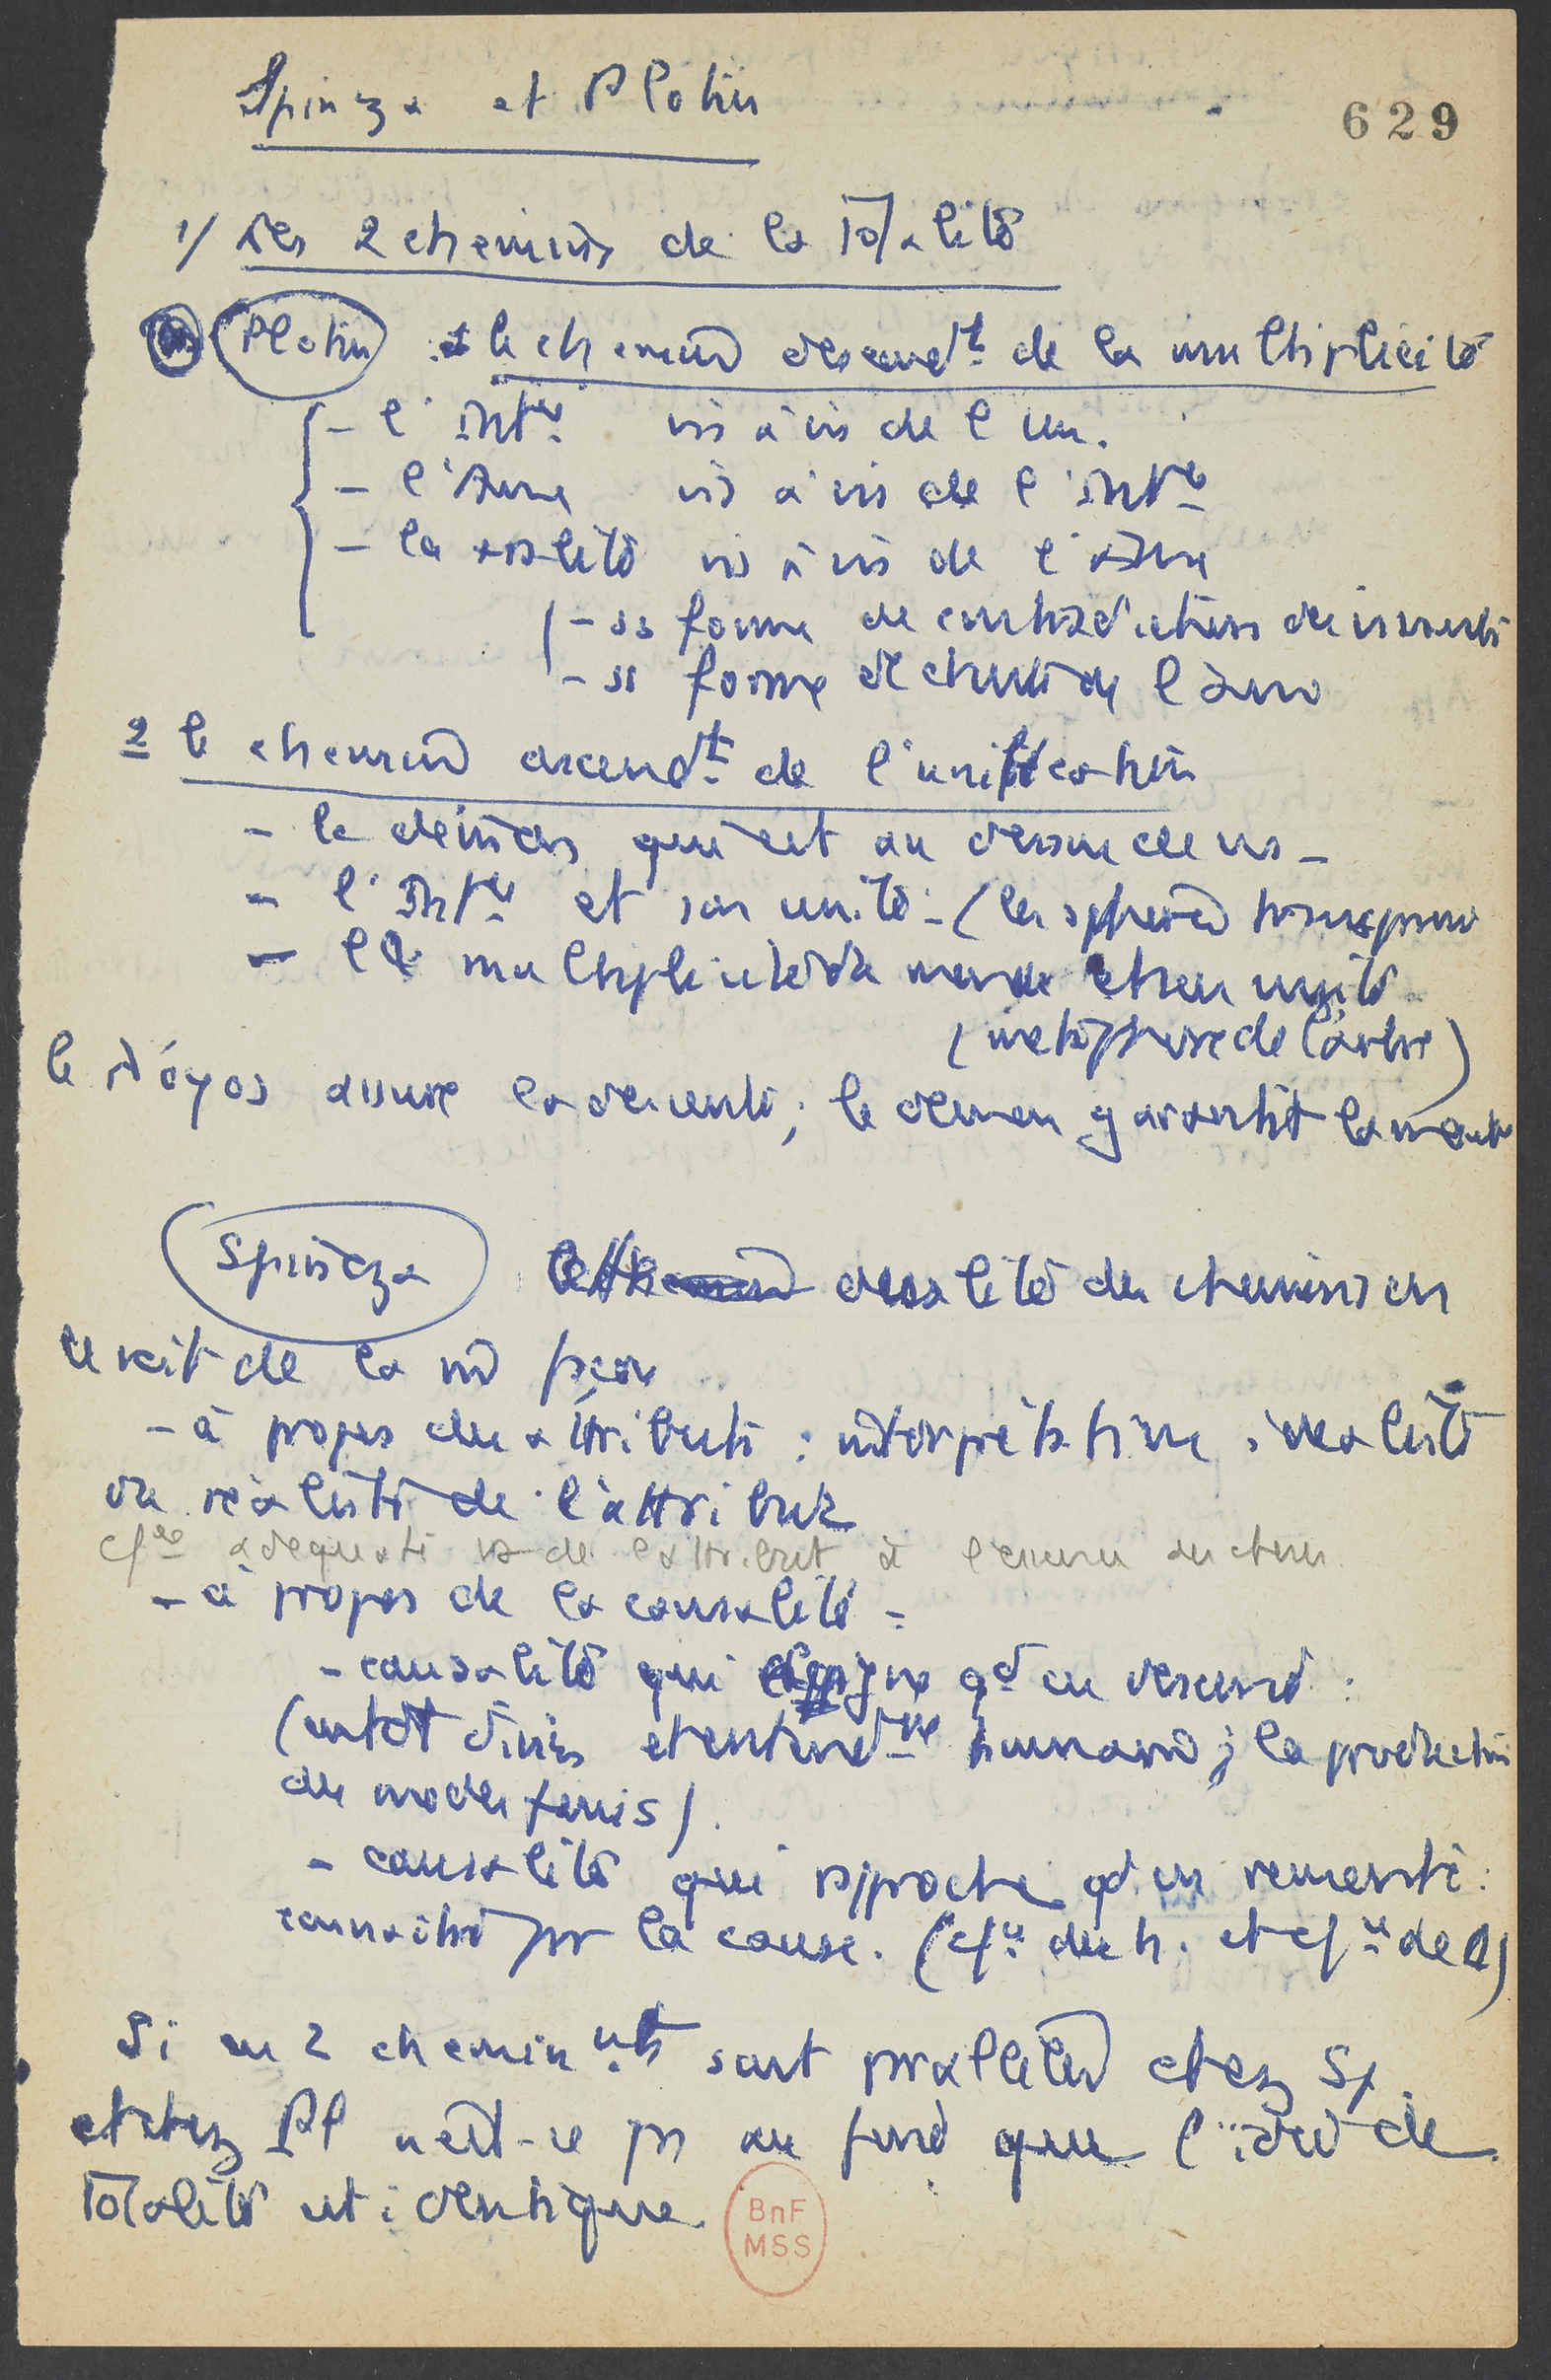 Spinoza et Plotin
629
1/ Les 2 chemins de la Totalité
Plotin : le chemin descendt de la multiplicité
- l'Intce vis à vis de l'un.
- l'Ame vis à vis de l'Intce
- la réalité vis à vis de l'âme
- ss forme de
- ss forme de chute de l'âme
2 le chemin ascendt de l'unification
- le qui est au dessus de ns -
- l'Intce et son unité - (la sphère transparente
- la multiplicité du monde et son unité
(métaphore de l'arbre)
le Λόγος assure la descente ; le garantit la montée
Spinoza dualité des chemins
de la
- à propos des attributs : interprétation idéaliste
ou réaliste de l'attribut
adéquate de l'attribut à l'essence
- à propos de la causalité =
- causalité qui éloigne qd on descend :
(entdt divin et entendme humain ; la production
des modes finis).
- causalité qui rapproche qd on remonte :
connaître par la cause. ( de h. et de D)
Si ces 2 cheminnts sont parallèles chez Sp.
et chez Pl n'est-ce pas au fond que l'idée de
Totalité est identique.
BnF
MSS